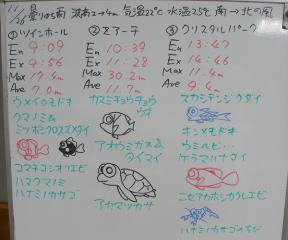 11/26 曇りのち雨 波高2→4m 気温22℃ 水温25℃ 南→北の風
①ツインホール
En 9:09
Ex 9:56
Max 17.4m
Ave 7.0m
ウメイロモドキ
クマノミ &
ミツボシクロスズメダイ
コマネコシオリエビ
ハマクマノミ
ハナミノカサゴ
②Zアーチ
En 10:39
Ex 11:28
Max 30.2m
Ave 11.7m
カスミチョウチョウウオ
アオウミガメ &
タイマイ
アカマツカサ
③クリスタルパーク
En 13:47
Ex 14:
Max 14.8m
Ave 9.4m
スカシテンジクダイ
キンメモドキ
ウミルピ…
ケラマハナダイ
ニセアカホシカクレエビ
ハナミノカサゴのちび